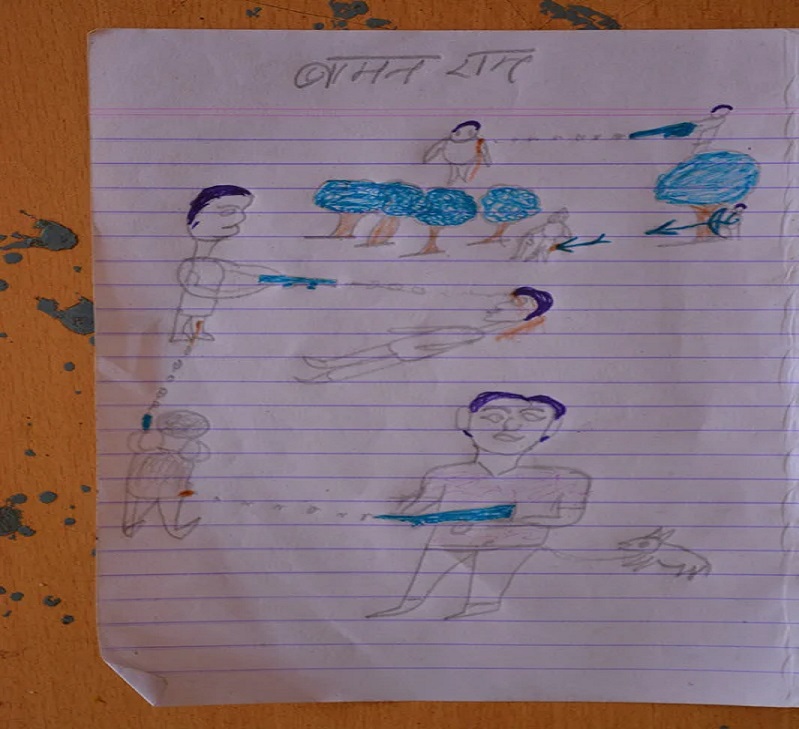 बामन राम